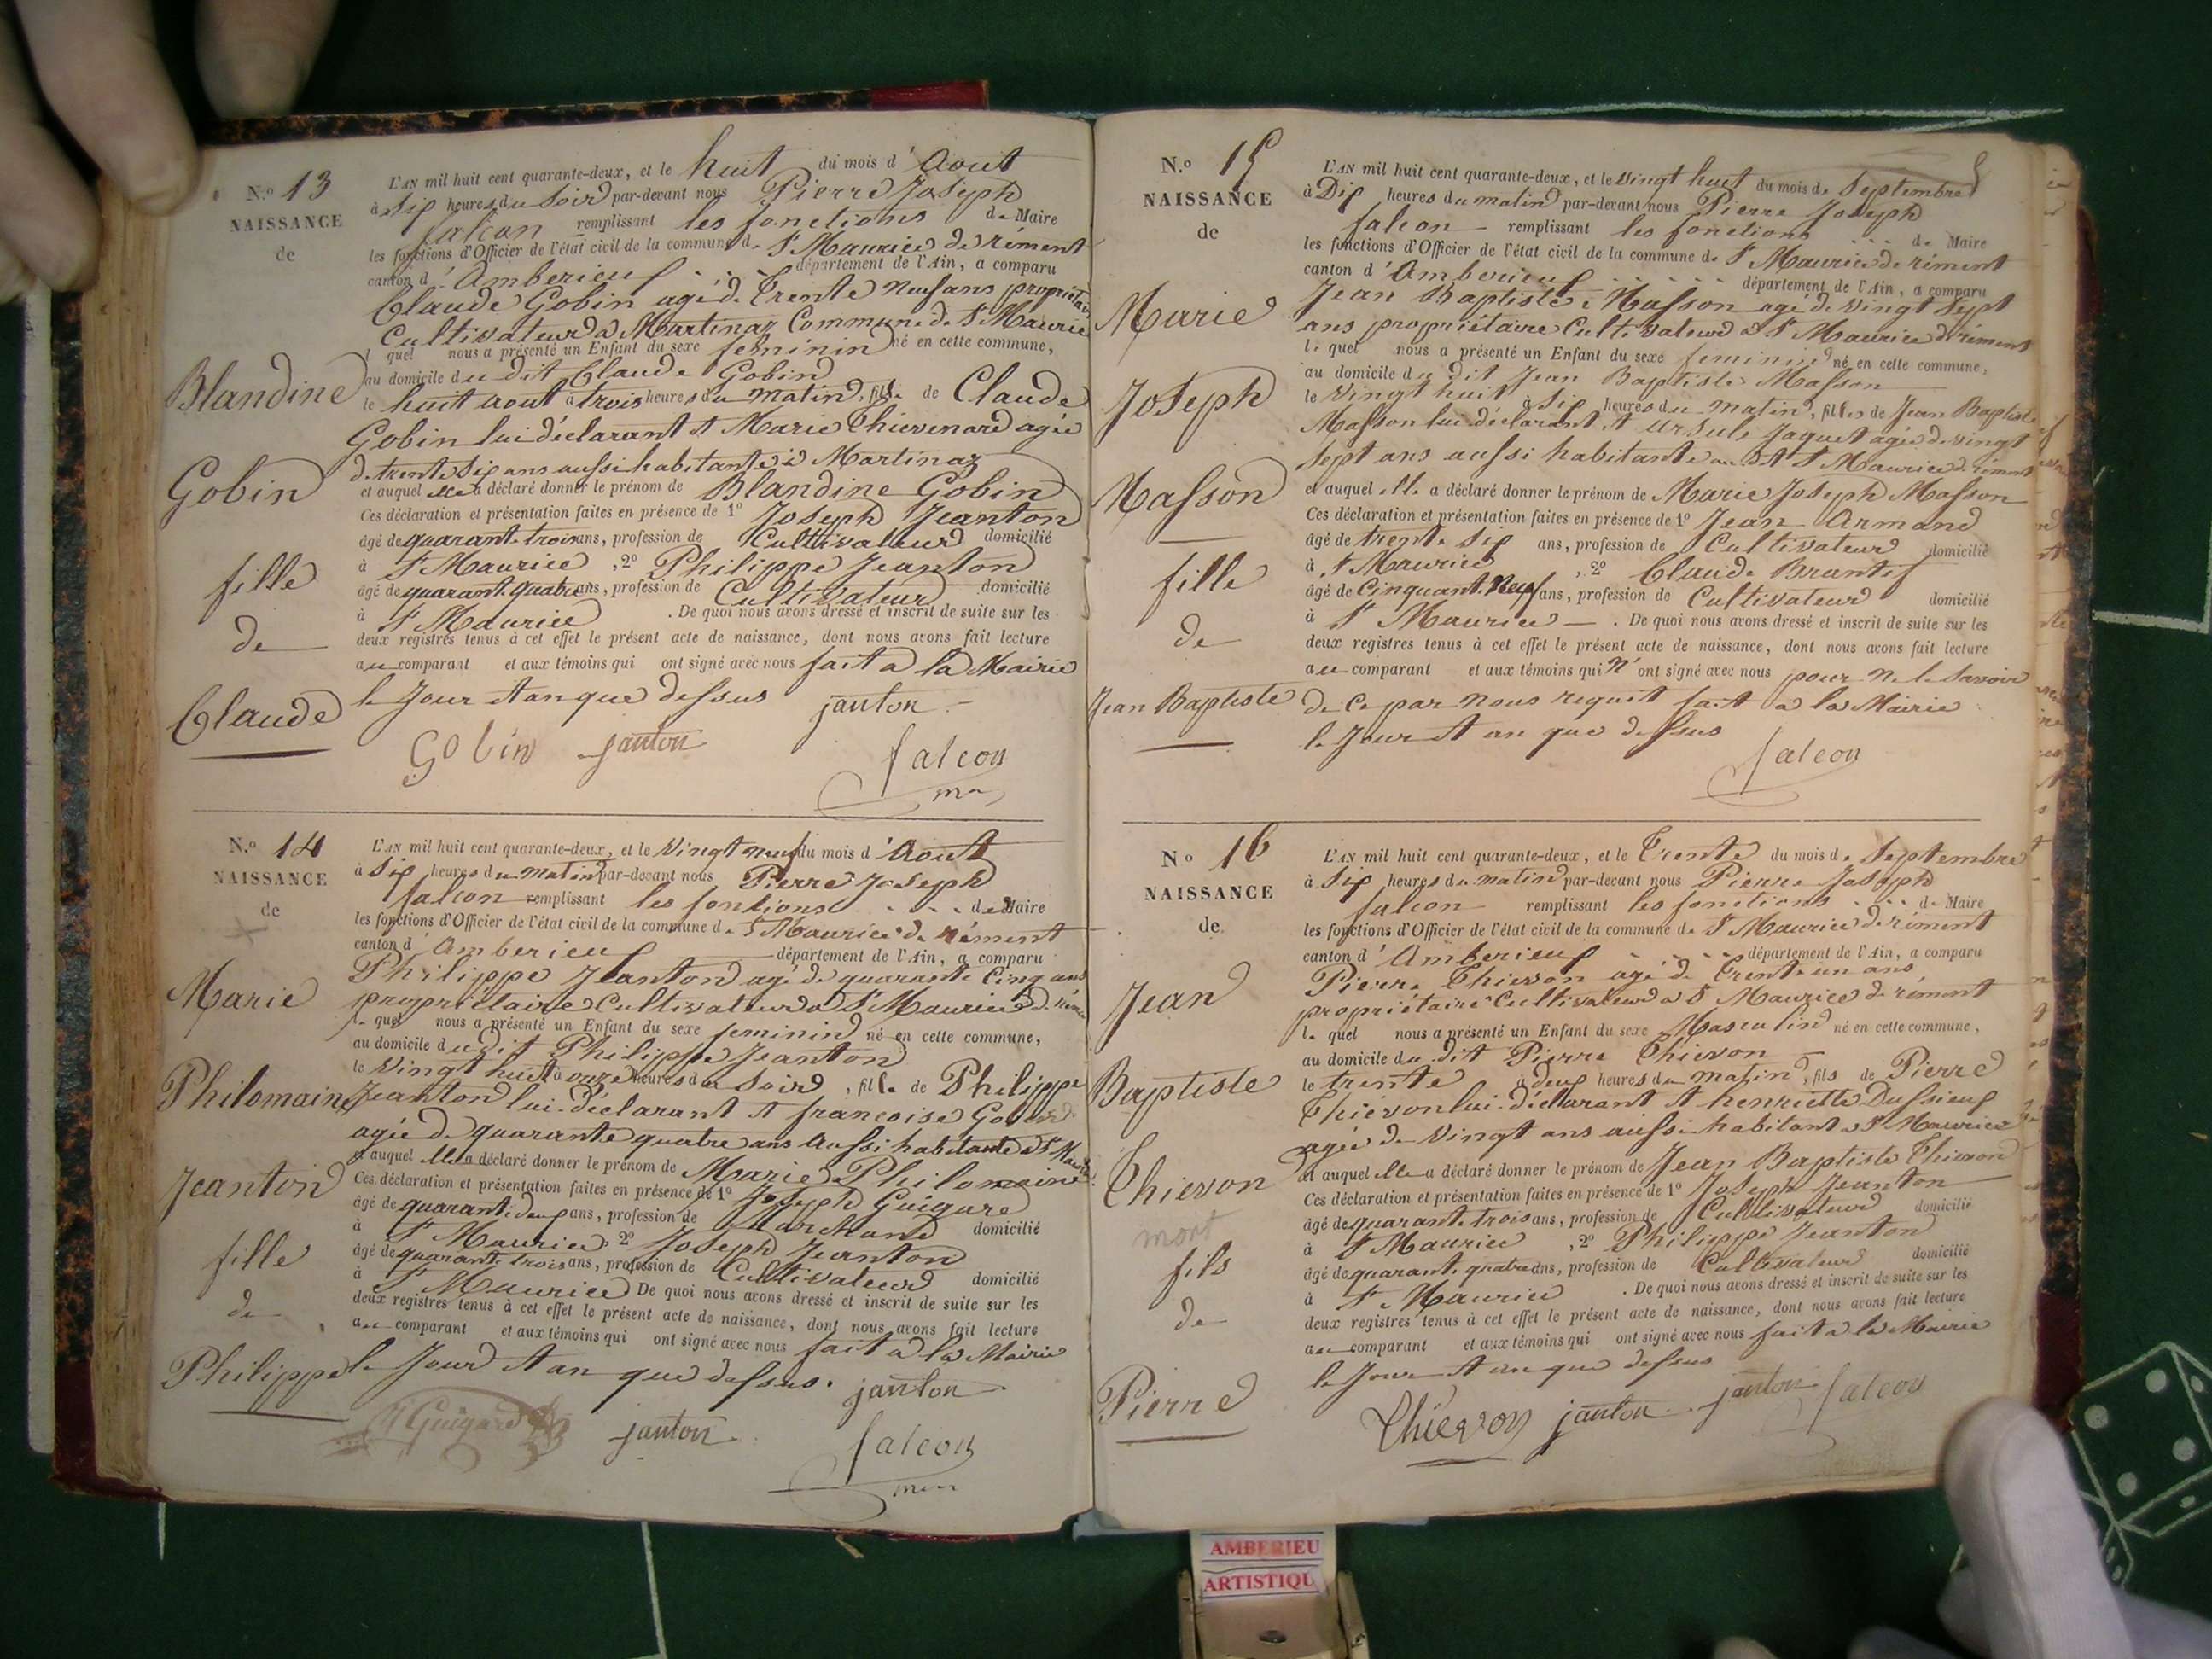 N.o 13
NAISSANCE
de
Blandine
Gobin
fille
de
Claude
L'AN mil huit cent quarante-deux, et le huit du mois d' Aout
à Six heures du Soir par-devant nous Pierre Joseph
falcon remplissant les fonctions de Maire
les fonctions d'Officier de l'état civil de la commune de St Maurice de rément
canton d' Amberieux département de l'Ain, a comparu
Claude Gobin agé de Trente Neuf ans propriétaire
Cultivateur à Martinaz Commune de St Maurice
l quel nous a présenté un Enfant du sexe feminin né en cette commune,
au domicile du dit Claude Gobin
le huit aout à trois heures du matin, fille de Claude
Gobin lui déclarant et Marie Chievenard agée
de trente Six ans aussi habitante à Martinaz
et auquel elle a déclaré donner le prénom de Blandine Gobin
Ces déclaration et présentation faites en présence de 1o Joseph Jeanton
âgé de quarante trois ans, profession de Cultivateur domicilié
à St Maurice, 2o Philippe Jeanton
âgé de quarante quatre ans, profession de Cultivateur domicilié
à St Maurice. De quoi nous avons dressé et inscrit de suite sur les
deux registres tenus à cet effet le présent acte de naissance, dont nous avons fait lecture
au comparant et aux témoins qui ont signé avec nous fait a la Mairie
le Jour et an que dessus janton
Gobin janton
falcon
N.o 14
NAISSANCE
de
Marie
Philomaine
Jeanton
fille
de
Philippe
L'AN mil huit cent quarante-deux, et le Vingt neuf du mois d' Aout
à Six heures du matin par-devant nous Pierre Joseph
falcon remplissant les fontions de Maire
les fonctions d'Officier de l'état civil de la commune de St Maurice de rément
canton d' Amberieux département de l'Ain, a comparu
Philippe Jeanton agé de quarante Cinq ans
propriétaire Cultivateur a St Maurice de
le quel nous a présenté un Enfant du sexe feminin né en cette commune,
au domicile du dit Philippe Jeanton
le Vingt huit à onze heures du Soir, fille de Philippe
Jeanton lui déclarant et francoise
agée de quarante quatre ans Aussi habitante a St
et auquel elle a déclaré donner le prénom de Marie Philomaine
Ces déclaration et présentation faites en présence de 1o Joseph Guigard
âgé de quarante deux ans, profession de Marchand domicilié
à St Maurice 2o Joseph Jeanton
âgé de quarante trois ans, profession de Cultivateur domicilié
à St Maurice De quoi nous avons dressé et inscrit de suite sur les
deux registres tenus à cet effet le présent acte de naissance, dont nous avons fait lecture
au comparant et aux témoins qui ont signé avec nous fait a la Mairie
le Jour et an que dessus. janton
Guigard janton
falcon
N.o 15
NAISSANCE
de
Marie
Joseph
Masson
fille
de
Jean Baptiste
L'AN mil huit cent quarante-deux, et le Vingt huit du mois de Septembre
à Dix heures du matin par-devant nous Pierre Joseph
falcon remplissant les fonctions de Maire
les fonctions d'Officier de l'état civil de la commune de St Maurice de rément
canton d' Amberieux département de l'Ain, a comparu
Jean Baptiste Masson agé de Vingt Sept
ans propriétaire Cultivateur à St Maurice de rément
le quel nous a présenté un Enfant du sexe feminin né en cette commune,
au domicile du dit Jean Baptiste Masson
le Vingt huit à Six heures du matin, fille de Jean Baptiste
Masson lui déclarant et Ursule Jaquet agée de Vingt
Sept ans aussi habitante au dit St Maurice de rément
et auquel elle a déclaré donner le prénom de Marie Joseph Masson
Ces déclaration et présentation faites en présence de 1o Jean Armand
âgé de trente Six ans, profession de Cultivateur domicilié
à St Maurice, 2o Claude Brantif
âgé de Cinquante Neuf ans, profession de Cultivateur domicilié
à St Maurice. De quoi nous avons dressé et inscrit de suite sur les
deux registres tenus à cet effet le présent acte de naissance, dont nous avons fait lecture
au comparant et aux témoins qui n'ont signé avec nous pour ne le Savoir
de ce par nous requit fait a la Mairie
le Jour et an que dessus
falcon
No 16
NAISSANCE
de
Jean
Baptiste
Thievon
mort
fils
de
Pierre
L'AN mil huit cent quarante-deux, et le Trente du mois de Septembre
à Six heures du matin par-devant nous Pierre Joseph
falcon remplissant les fonctions de Maire
les fonctions d'Officier de l'état civil de la commune de St Maurice de rément
canton d' Amberieux département de l'Ain, a comparu
Pierre Thievon agé de Trente un ans
propriétaire Cultivateur a St Maurice de rément
le quel nous a présenté un Enfant du sexe Masculin né en cette commune,
au domicile du dit Pierre Thievon
le trente à deux heures du matin, fils de Pierre
Thievon lui déclarant et henriette Dussieux
agée de Vingt ans aussi habitant a St Maurice
et auquel elle a déclaré donner le prénom de Jean Baptiste Thievon
Ces déclaration et présentation faites en présence de 1o Joseph Jeanton
âgé de quarante trois ans, profession de Cultivateur domicilié
à St Maurice, 2o Philippe Jeanton
âgé de quarante quatre ans, profession de Cultivateur domicilié
à St Maurice. De quoi nous avons dressé et inscrit de suite sur les
deux registres tenus à cet effet le présent acte de naissance, dont nous avons fait lecture
au comparant et aux témoins qui ont signé avec nous fait a la Mairie
le Jour et an que dessus
Thievon janton janton falcon
AMBERIEU
ARTISTIQU